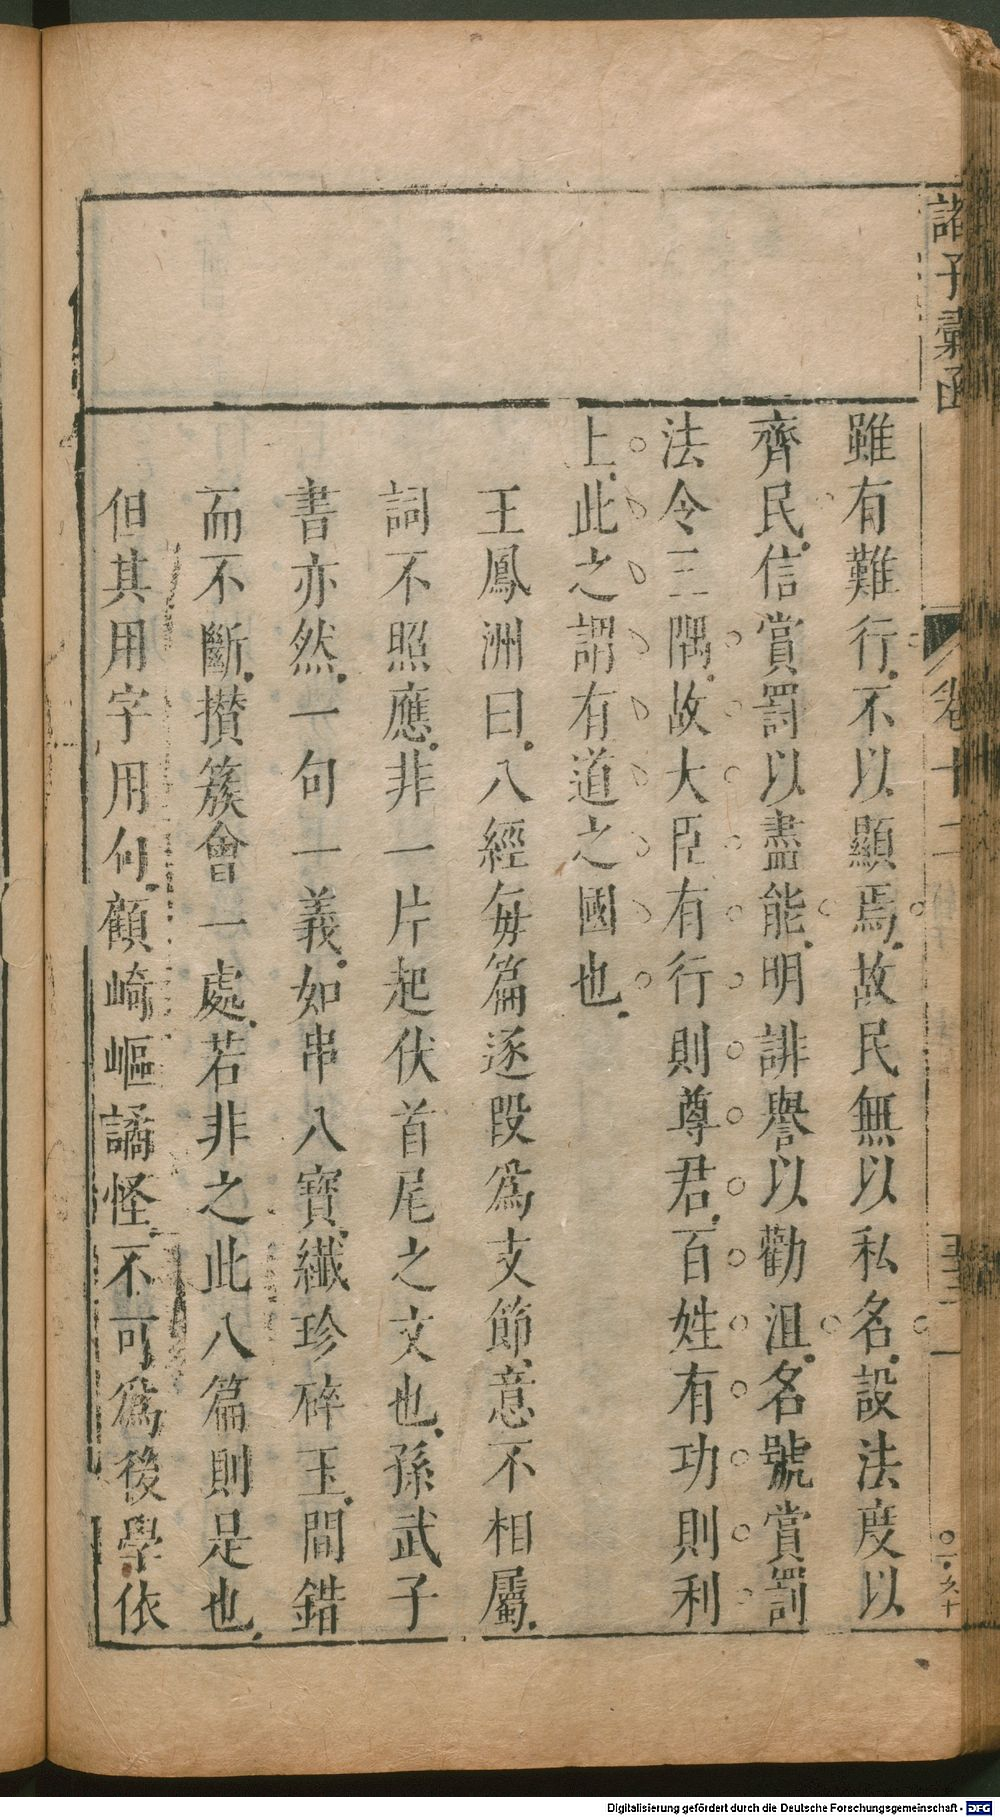 諸子彙函
卷十二
雖有難行不以顯焉故民無以私名設法度以
齊民信賞罰以盡能明誹譽以勸沮名號賞罰
法令三隅故大臣有行則尊君百姓有功則利
上此之謂有道之國也
王鳳洲曰八經每篇逐段爲支節意不相屬
詞不照應非一片起伏首尾之文也孫武子
書亦然一句一義如串八寶纖珍碎玉間錯
而不斷攅簇會一處若非之此八篇則是也
但其用字用句顧崎嶇譎怪不可爲後學依
Digitalisierung gefördert durch die Deutsche Forschungsgemeinschaft - DFG